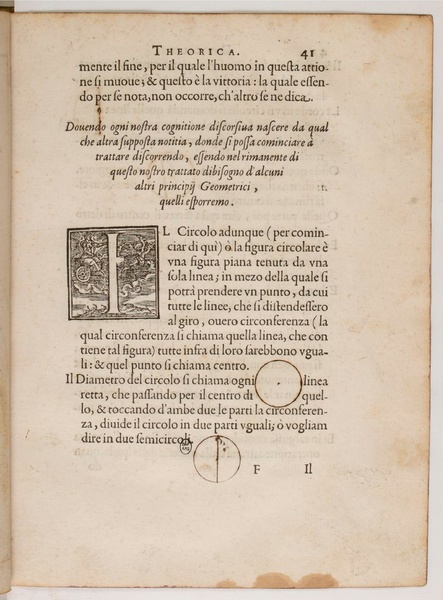 THEORICA. 41
mente il fine, per il quale l'huomo in questa attio-
ne si muoue; & questo è la vittoria: la quale essen-
do per se nota, non occorre, ch'altro se ne dica.
Douendo ogni nostra cognitione discorsiua nascere da qual
che altra supposta notitia, donde si possa cominciare à
trattare discorrendo, essendo nel rimanente di
questo nostro trattato dibisogno d'alcuni
altri principij Geometrici,
quelli esporremo.
IL Circolo adunque (per comin-
ciar di quì) ò la figura circolare è
vna figura piana tenuta da vna
sola linea; in mezo della quale si
potrà prendere vn punto, da cui
tutte le linee, che si distendessero
al giro, ouero circonferenza (la
qual circonferenza si chiama quella linea, che con
tiene tal figura) tutte infra di loro sarebbono vgua-
li: & quel punto si chiama centro.
Il Diametro del circolo si chiama ogni linea
retta, che passando per il centro di quel-
lo, & toccando d'ambe due le parti la circonferen-
za, diuide il circolo in due parti vguali; ò vogliam
dire in due semicircoli.
F Il